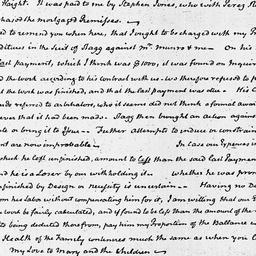 Haight. It was paid to me by Stephen Jones, who with Perez
chased the mortgaged Premisses. —
to remind you when here, that I ought to be charged with my Pro
ditures in the Suit of Stagg against Mr. Munro & me — On his
last payment, which I think was $1000, it was found on Inquir
ed the work according to his contract with us. We therefore refused to p
the work was finished, and that the last payment was due — His C
ude referred to arbitrators, who it seems did not think a formal awar
ever that it had been made. Stagg then brought an action against
ute or bring it to Issue — Further attempts to induce or constrain
nt are now improbable — In case our Expences in
which he left unfinished, amount to less than the said last Paymen
and he is a Loser by our withholding it. — whether he was pre
nfinished by Design or necessity is uncertain — Having no De
on his labor without compensating him for it, I am willing that our E
work be fairly calculated, and if found to be less than the amount of the
to being deducted therefrom, pay him my Proportion of the Ballance
Health of the Family continues much the same as when you l
My Love to Mary and the Children —